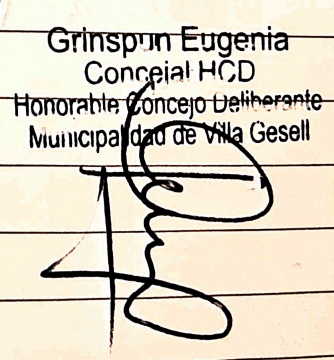 Grinspun Eugenia
Concejal HCD
Honorable Concejo Deliberante
Municipalidad de Villa Gesell